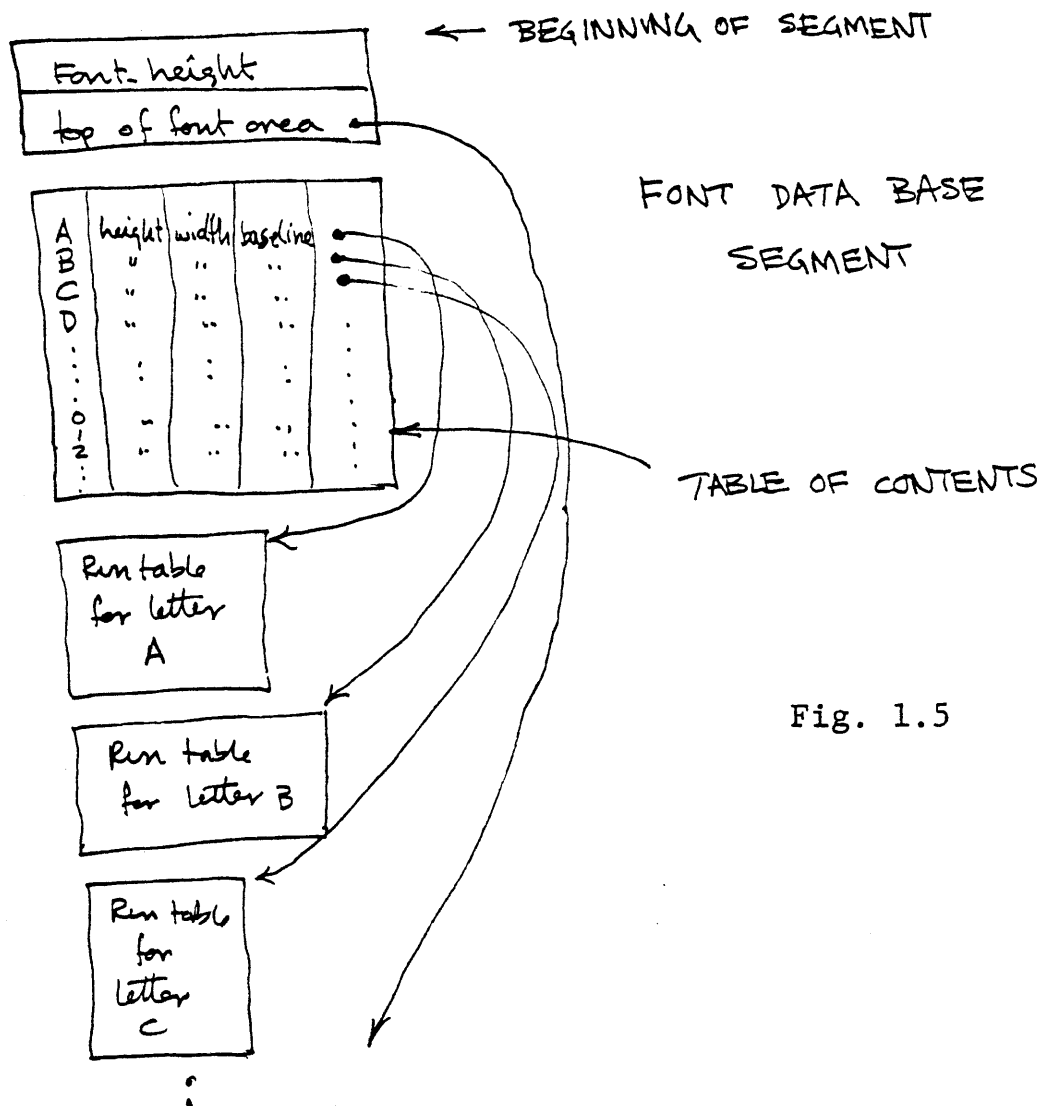 ← BEGINNING OF SEGMENT
Font-height
top of font area
FONT DATA BASE
SEGMENT
A height width baseline
B " " "
C " " "
D " " "
0 " " "
1
2 " " "
TABLE OF CONTENTS
Run table
for letter
A
Run table
for letter B
Run table
for
letter
C
Fig. 1.5